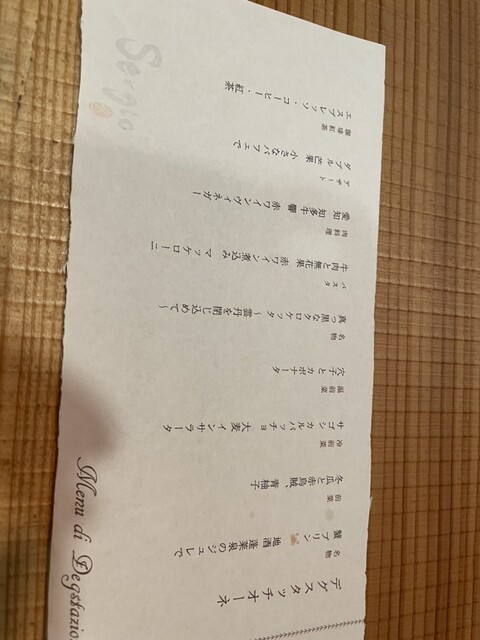 Menu di Degstazio
デグスタッチオーネ
名物
蟹プリン 地酒蓬莱泉のジュレで
前菜
冬瓜と赤烏賊、青柚子
冷前菜
サゴシカルパッチョ 大麦インサラータ
温前菜
穴子とカポナータ
名物
真っ黒なクロケッタ ~雲丹を閉じ込めて~
パスタ
牛肉と無花果 赤ワイン煮込み マッケローニ
肉料理
愛知 知多牛 響 赤ワインヴィネガー
ドルチェ
ダブル芒果 小さなパフェで
珈琲 紅茶
エスプレッソ・コーヒー・紅茶
Sergio